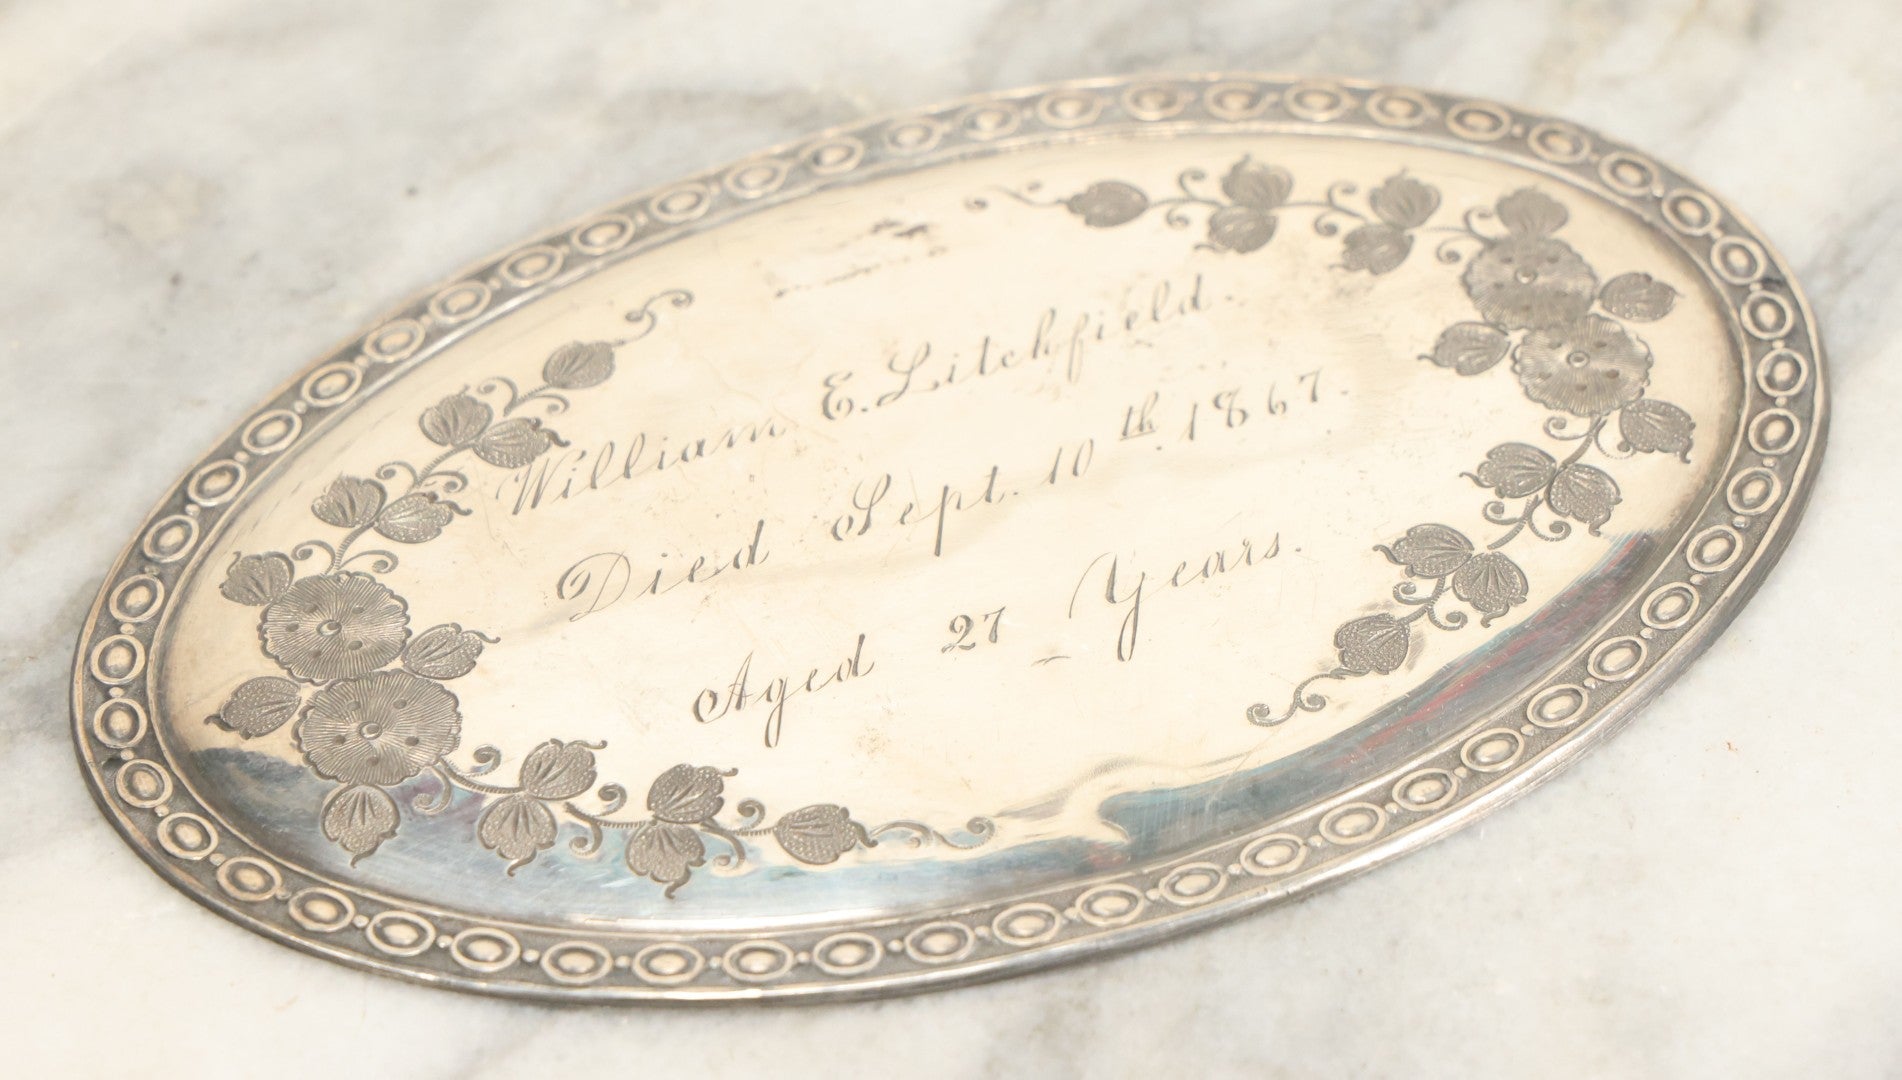 William E. Litchfield.
Died Sept. 10th. 1867.
Aged 27 Years.